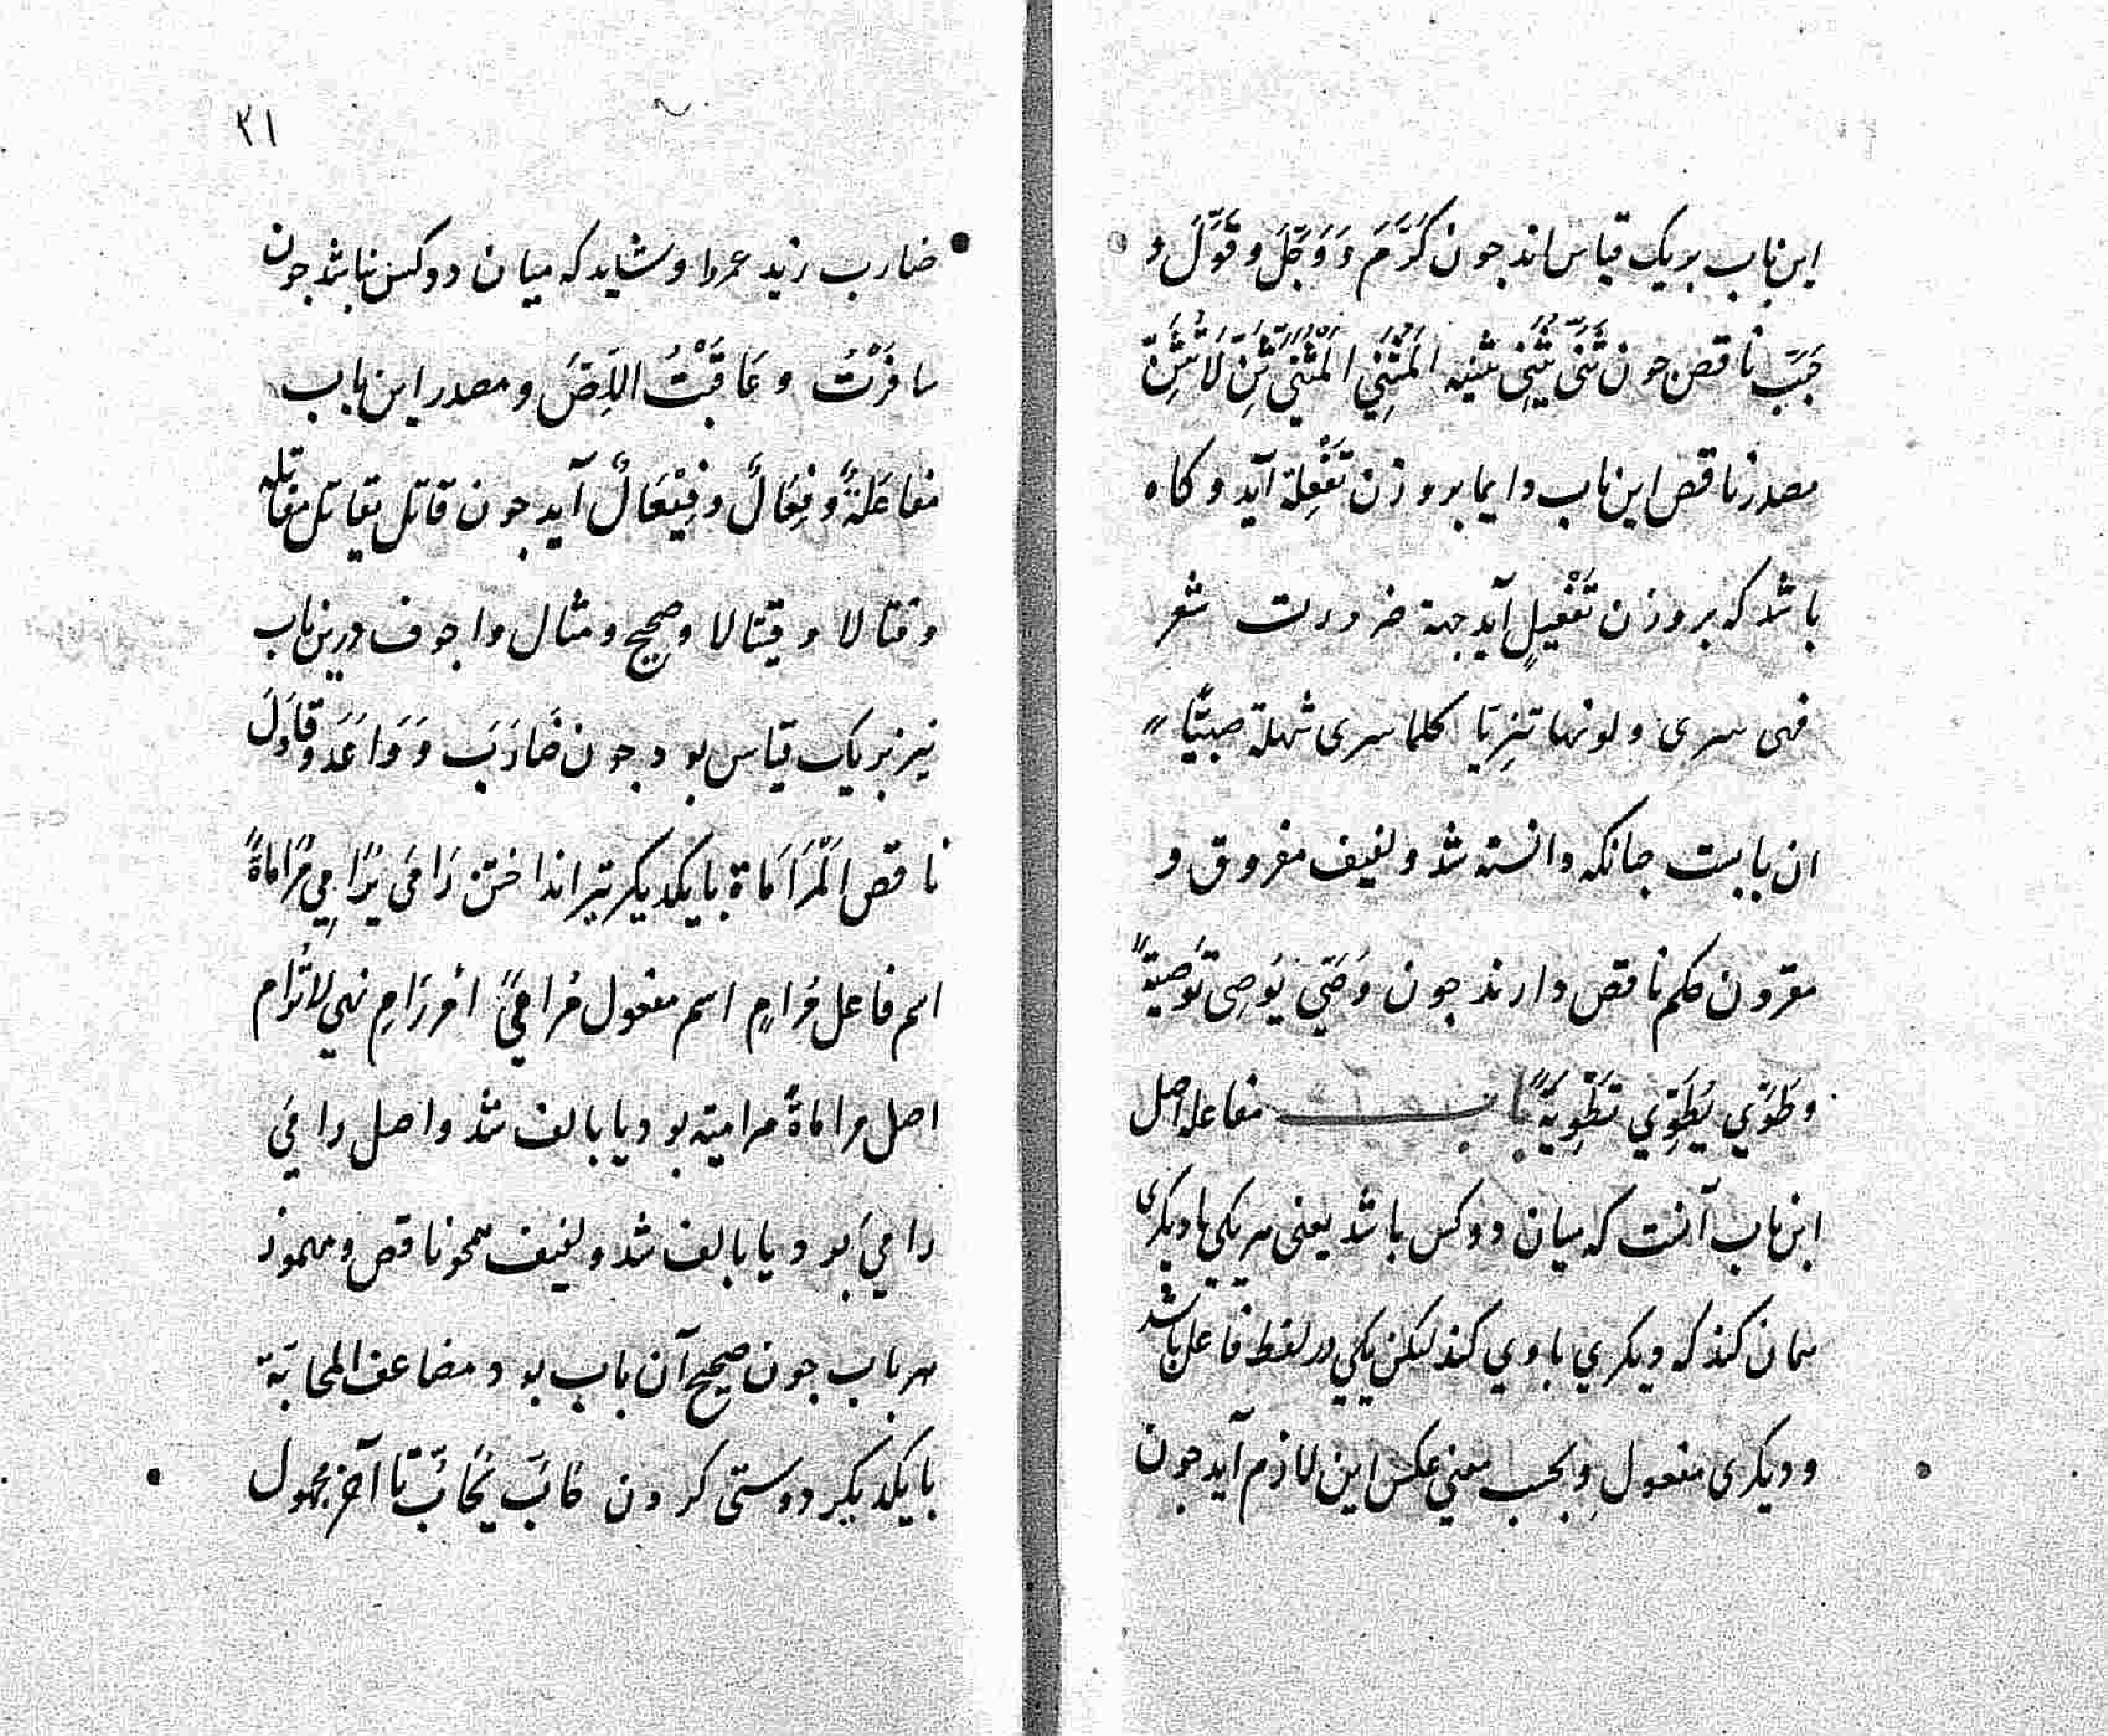 این باب بر یک قیاس اند جون کَرَّمَ وَ وَجَّلَ و قَوَّلَ و
حَبَّبَ ناقص جون ثَنَّی یُثَنِّی تثنیه المُثَنِّي المُثَنَّي ثَنِّ لَا تُثَنِّ
مصدر ناقص این باب دایما بر وزن تَفْعِلة آید و کاه
باشد که بر وزن تَفْعیلٍ آید جهة ضرورت شعر
فهی سری و لونها تنزیّا کلما سری شهلة صبیّا
ان بابیست جنانکه دانسته شد و لفیف مفروق و
مقرون حکم ناقص دارند جون وَصّي یُوَصِی تَوْصیَةً
و طَوَّي یُطَوِّي تَطْوِیَةً باب مفاعله اصل
این باب آنست که میان دو کس باشد یعنی هر یکی با دیکری
همان کند که دیکري با وي کند لیکن یکي در لفظ فاعل باشد
و دیکری مفعول و بحسب معني عکس این لازم آید جون
۲۱
ضارب زید عمروا و شاید که میان دو کس نباشد جون
سافَرْتُ و عَاقَبْتُ اللِصَّ و مصدر این باب
مفاعَلَةٌ و فِعَالٌ و فِیْعَالٌ آید جون قاتل یقاتل مقاتله
و قتالا و قیتالا و صحیح و مثال و اجوف درین باب
نیز بر یک قیاس بود جون ضَارَبَ وَ وَاعَدَ و قَاوَلَ
ناقص اَلْمُرَامَاة با یکدیکر تیر انداختن رَامَی یُرَامِي مُرَامَاةً
اسم فاعل مُرامٍ اسم مفعول مُرامًي امر رَامِ نهي لا تُرام
اصل مراماةً مرامیة بود یا با الف شد و اصل رامَي
رامَيَ بود یا با الف شد و لفیف همجو ناقص و مهموز
هر باب جون صحیح آن باب بود مضاعف المحابّة
با یکدیکر دوستی کردن حَابَّ یُحَابُّ تا آخر مجهول